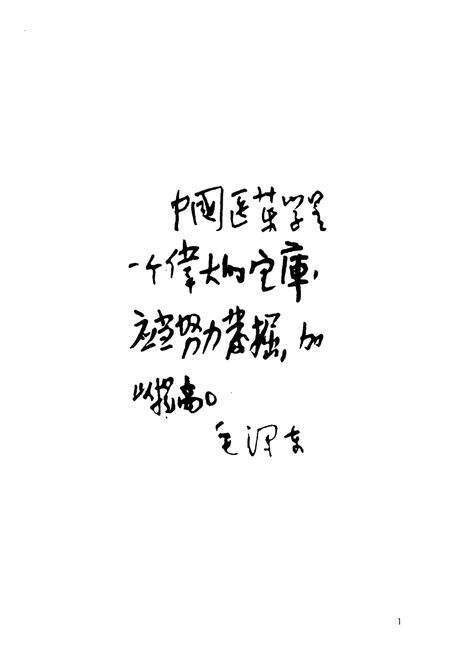 中國医药学是
一个偉大的宝庫，
应当努力发掘，加
以提高。
毛泽东
1